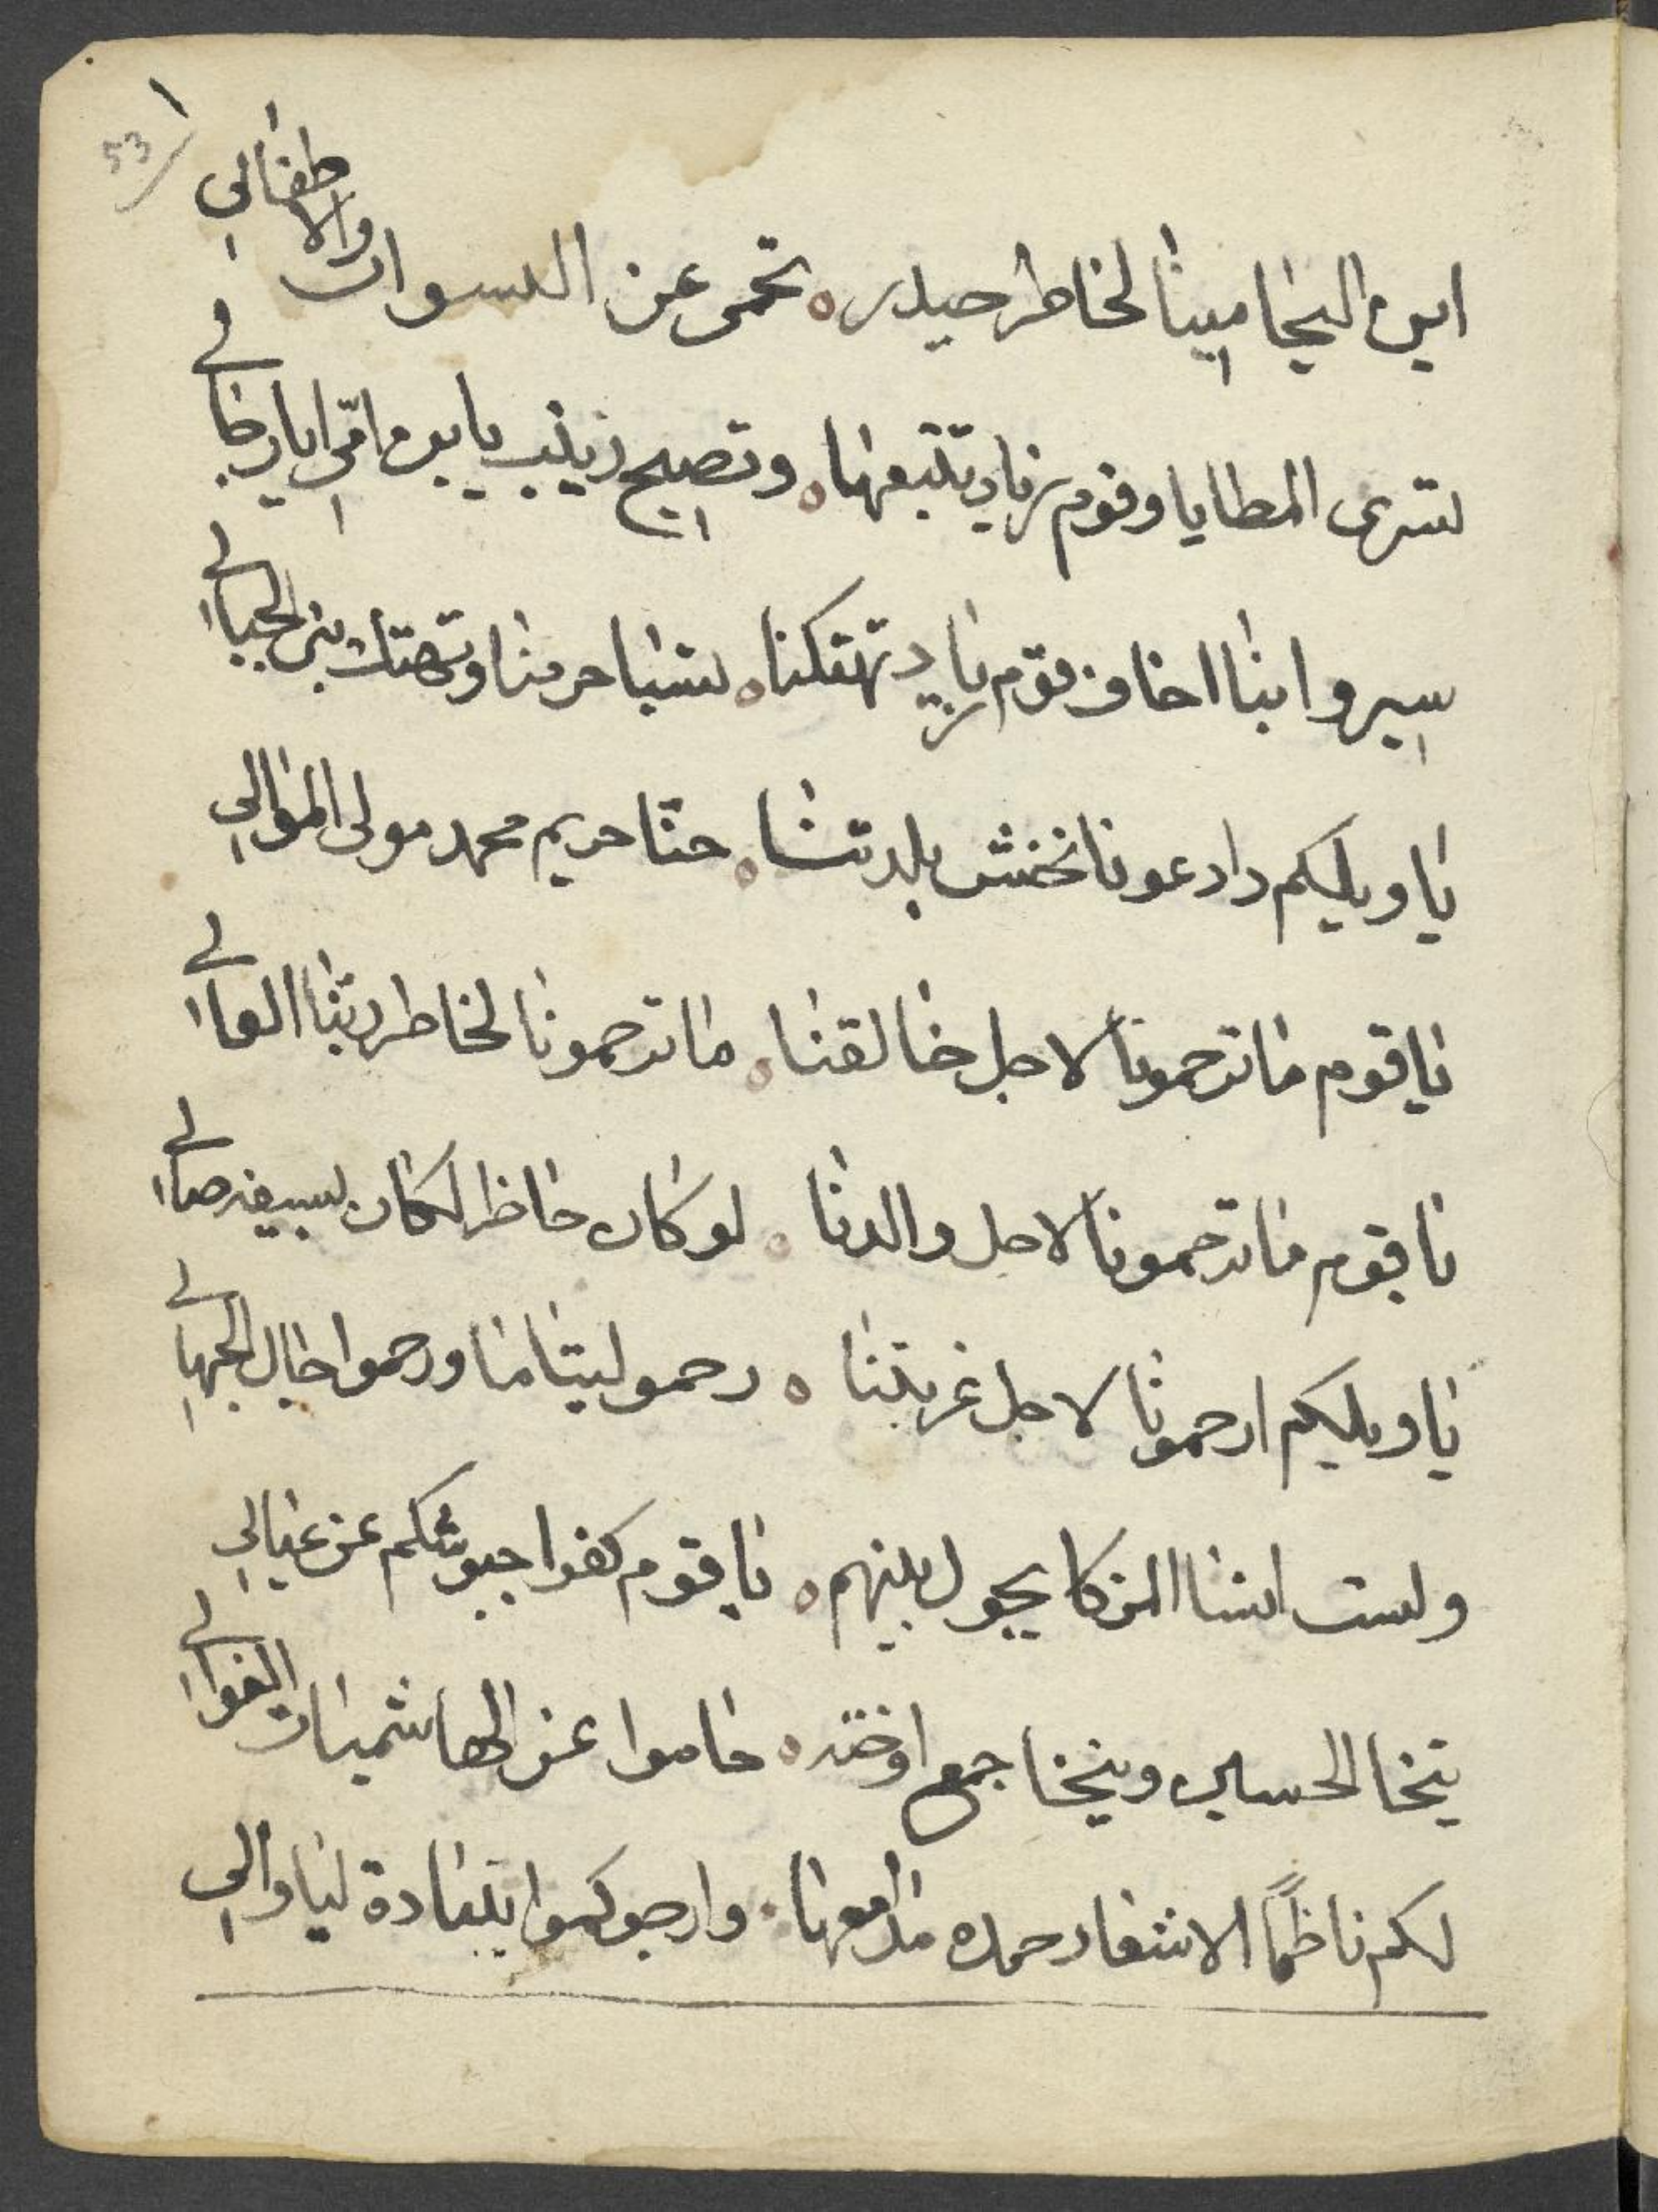 53
اين اليحامينا لخاطر حيدر ٥ تحمى عن النسوان والاطفالي
تسرى المطايا وقوم زياد تتبعها ٥ وتصيح زينب يا بن امي ايا رجالي
سيروا بنا اخاف قوم زياد تهتكنا ٥ تسبا حرمنا وتهتك بين الجبالي
يا ويليكم دادعونا نخش بلدتنا ٥ حنا حريم محمد مولى الموالي
يا قوم ما ترحمونا لاجل خالقنا ٥ ما ترحمونا لخاطر ربنا العالي
يا قوم ما ترحمونا لاجل والدنا ٥ لو كان حاظر لكان بسيفه صالي
يا ويليكم ارحمونا لاجل غربتنا ٥ رحمو ليتامنا ورحموا حال الجهالي
ولست انسا المزكا يجول بينهم ٥ يا قوم كفوا جيوشكم عن عيالي
ينخا الحسين وينخا جمع اوخته ٥ حاموا عن الهاشميات الغوالي
لكم ناظمًا الاشعار حمده مدامعها ٥ وارجوكموا بسعادة ليا والي